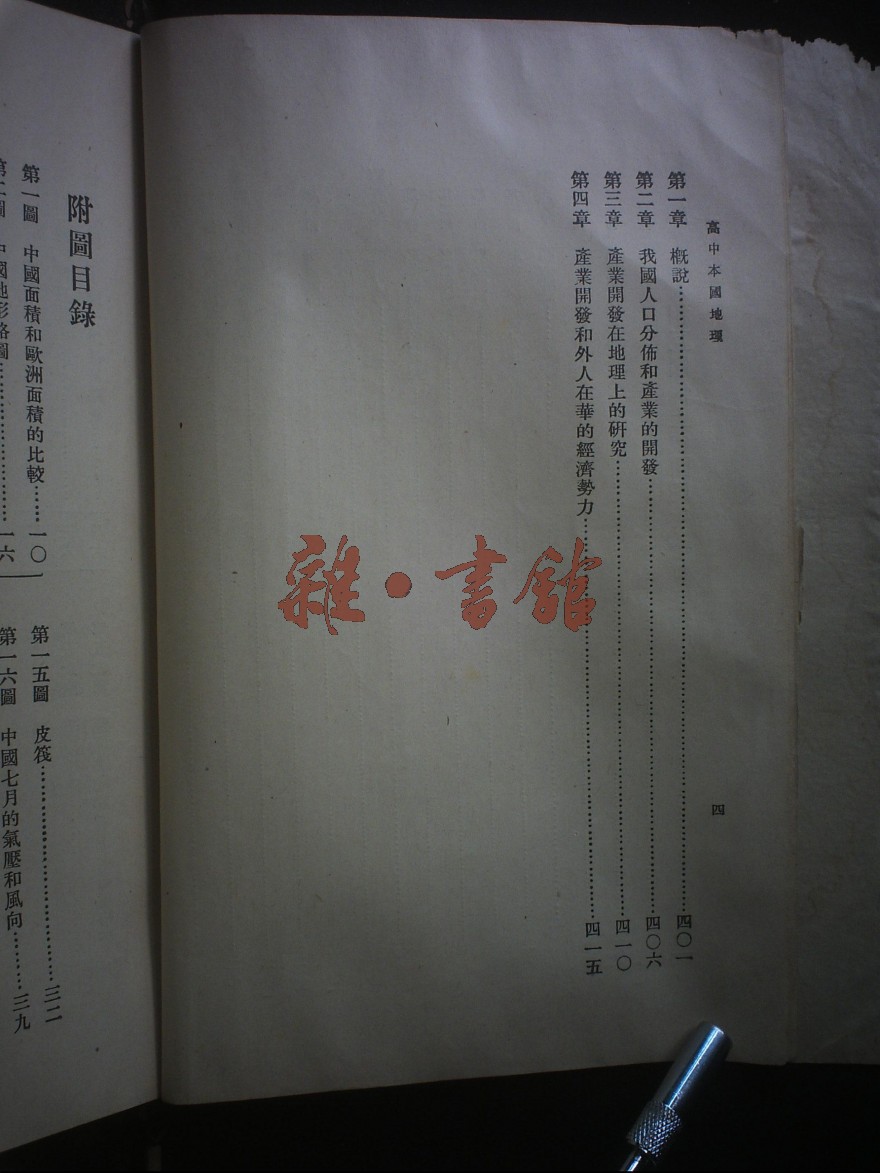 高中本國地理
四
第一章 概說……四〇一
第二章 我國人口分佈和產業的開發……四〇六
第三章 產業開發在地理上的研究……四一〇
第四章 產業開發和外人在華的經濟勢力……四一五
雜·書館
附圖目錄
第一圖 中國面積和歐洲面積的比較……一〇
第二圖 中國地形略圖……一六
第一五圖 皮筏……三二
第一六圖 中國七月的氣壓和風向……三九